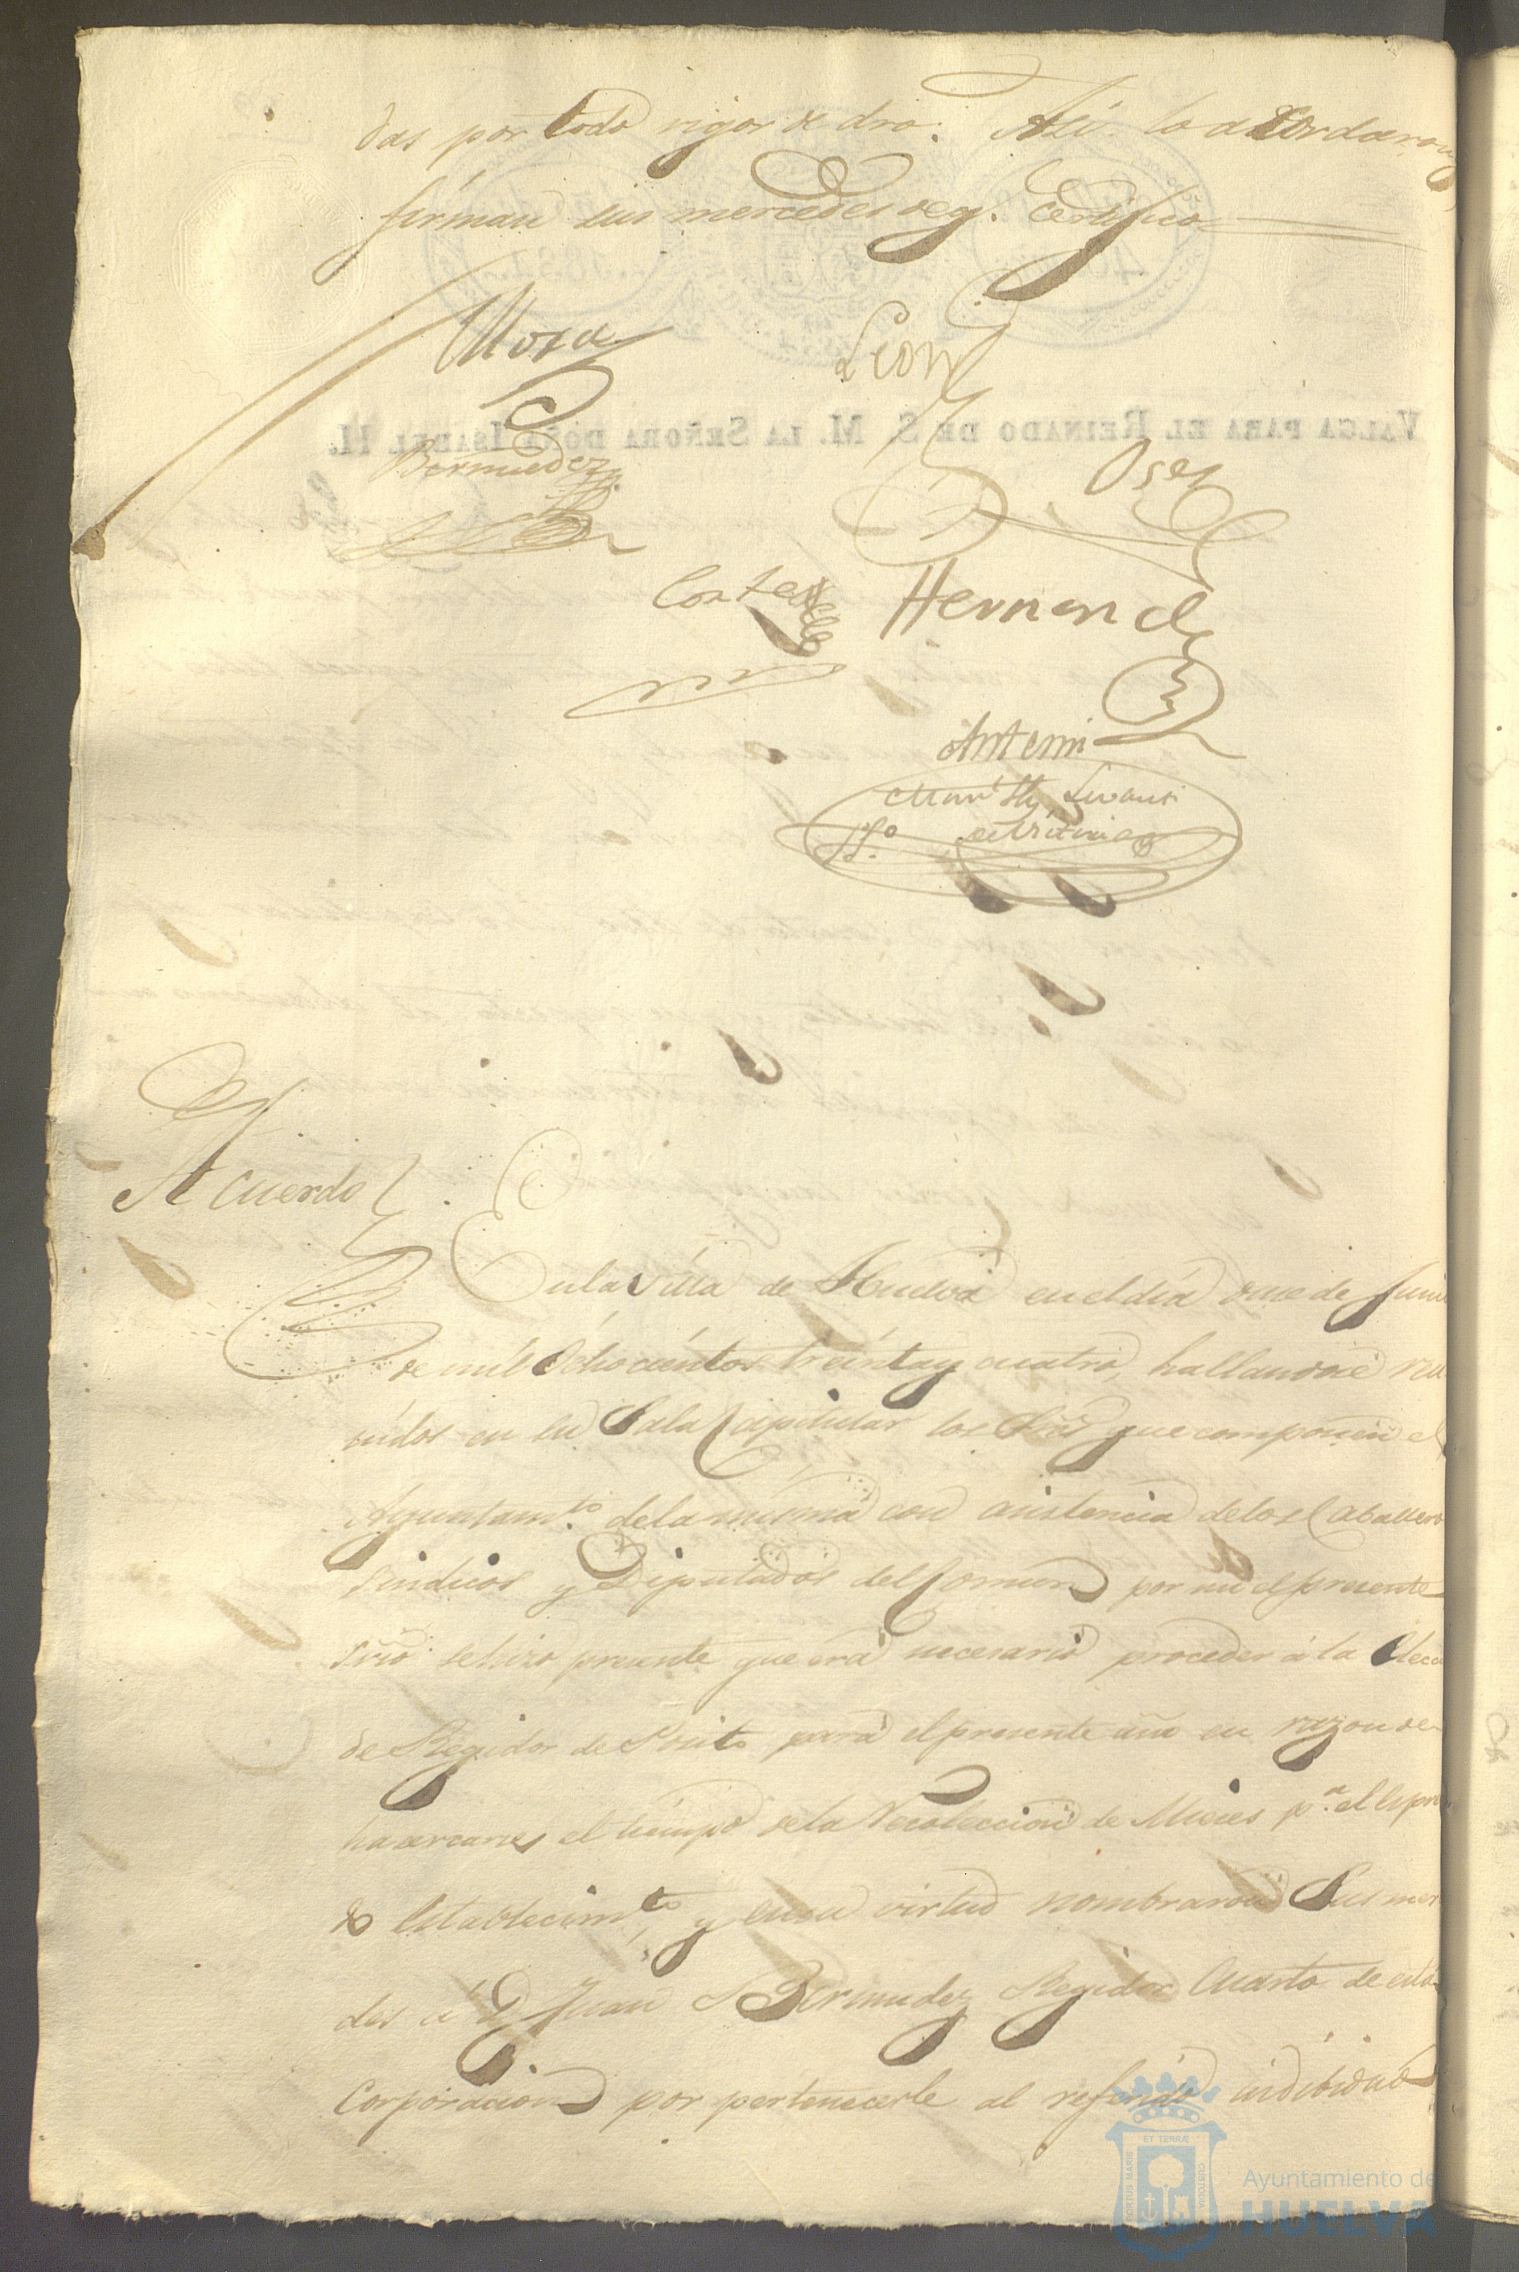 das por todo rigor de dro. Asi lo acordaron y
firman sus mercedes de q. certifico
Mora
Leon
VALGA PARA EL REINADO DE S. M. LA SEÑORA DOÑA ISABEL II.
Bermudez
Cortes
Hernand
Antemi
Acuerdo
En la Villa de Huelva en el dia once de Junio
de mil Ochocientos treinta y cuatro, hallandose reu
nidos en su Sala Capitular los Sres que componen el
Ayuntam.to de la misma con asistencia de los Caballeros
Sindicos y Diputados del Comun por mi el presente
Srio se hizo presente que era necesario proceder á la Elecc
de Regidor de Posito para el presente año en razon de
ha acercarse el tiempo de la recoleccion de Mieses p.a el espre
do establecim.to, y en su virtud nombraron Sus mer
des á D Juan Bermudez Regidor Cuarto de esta
Corporacion por pertenecerle al referido indibiduo
PORTUS MARIS
ET TERRÆ
CUSTODIA
Ayuntamiento de
HUELVA